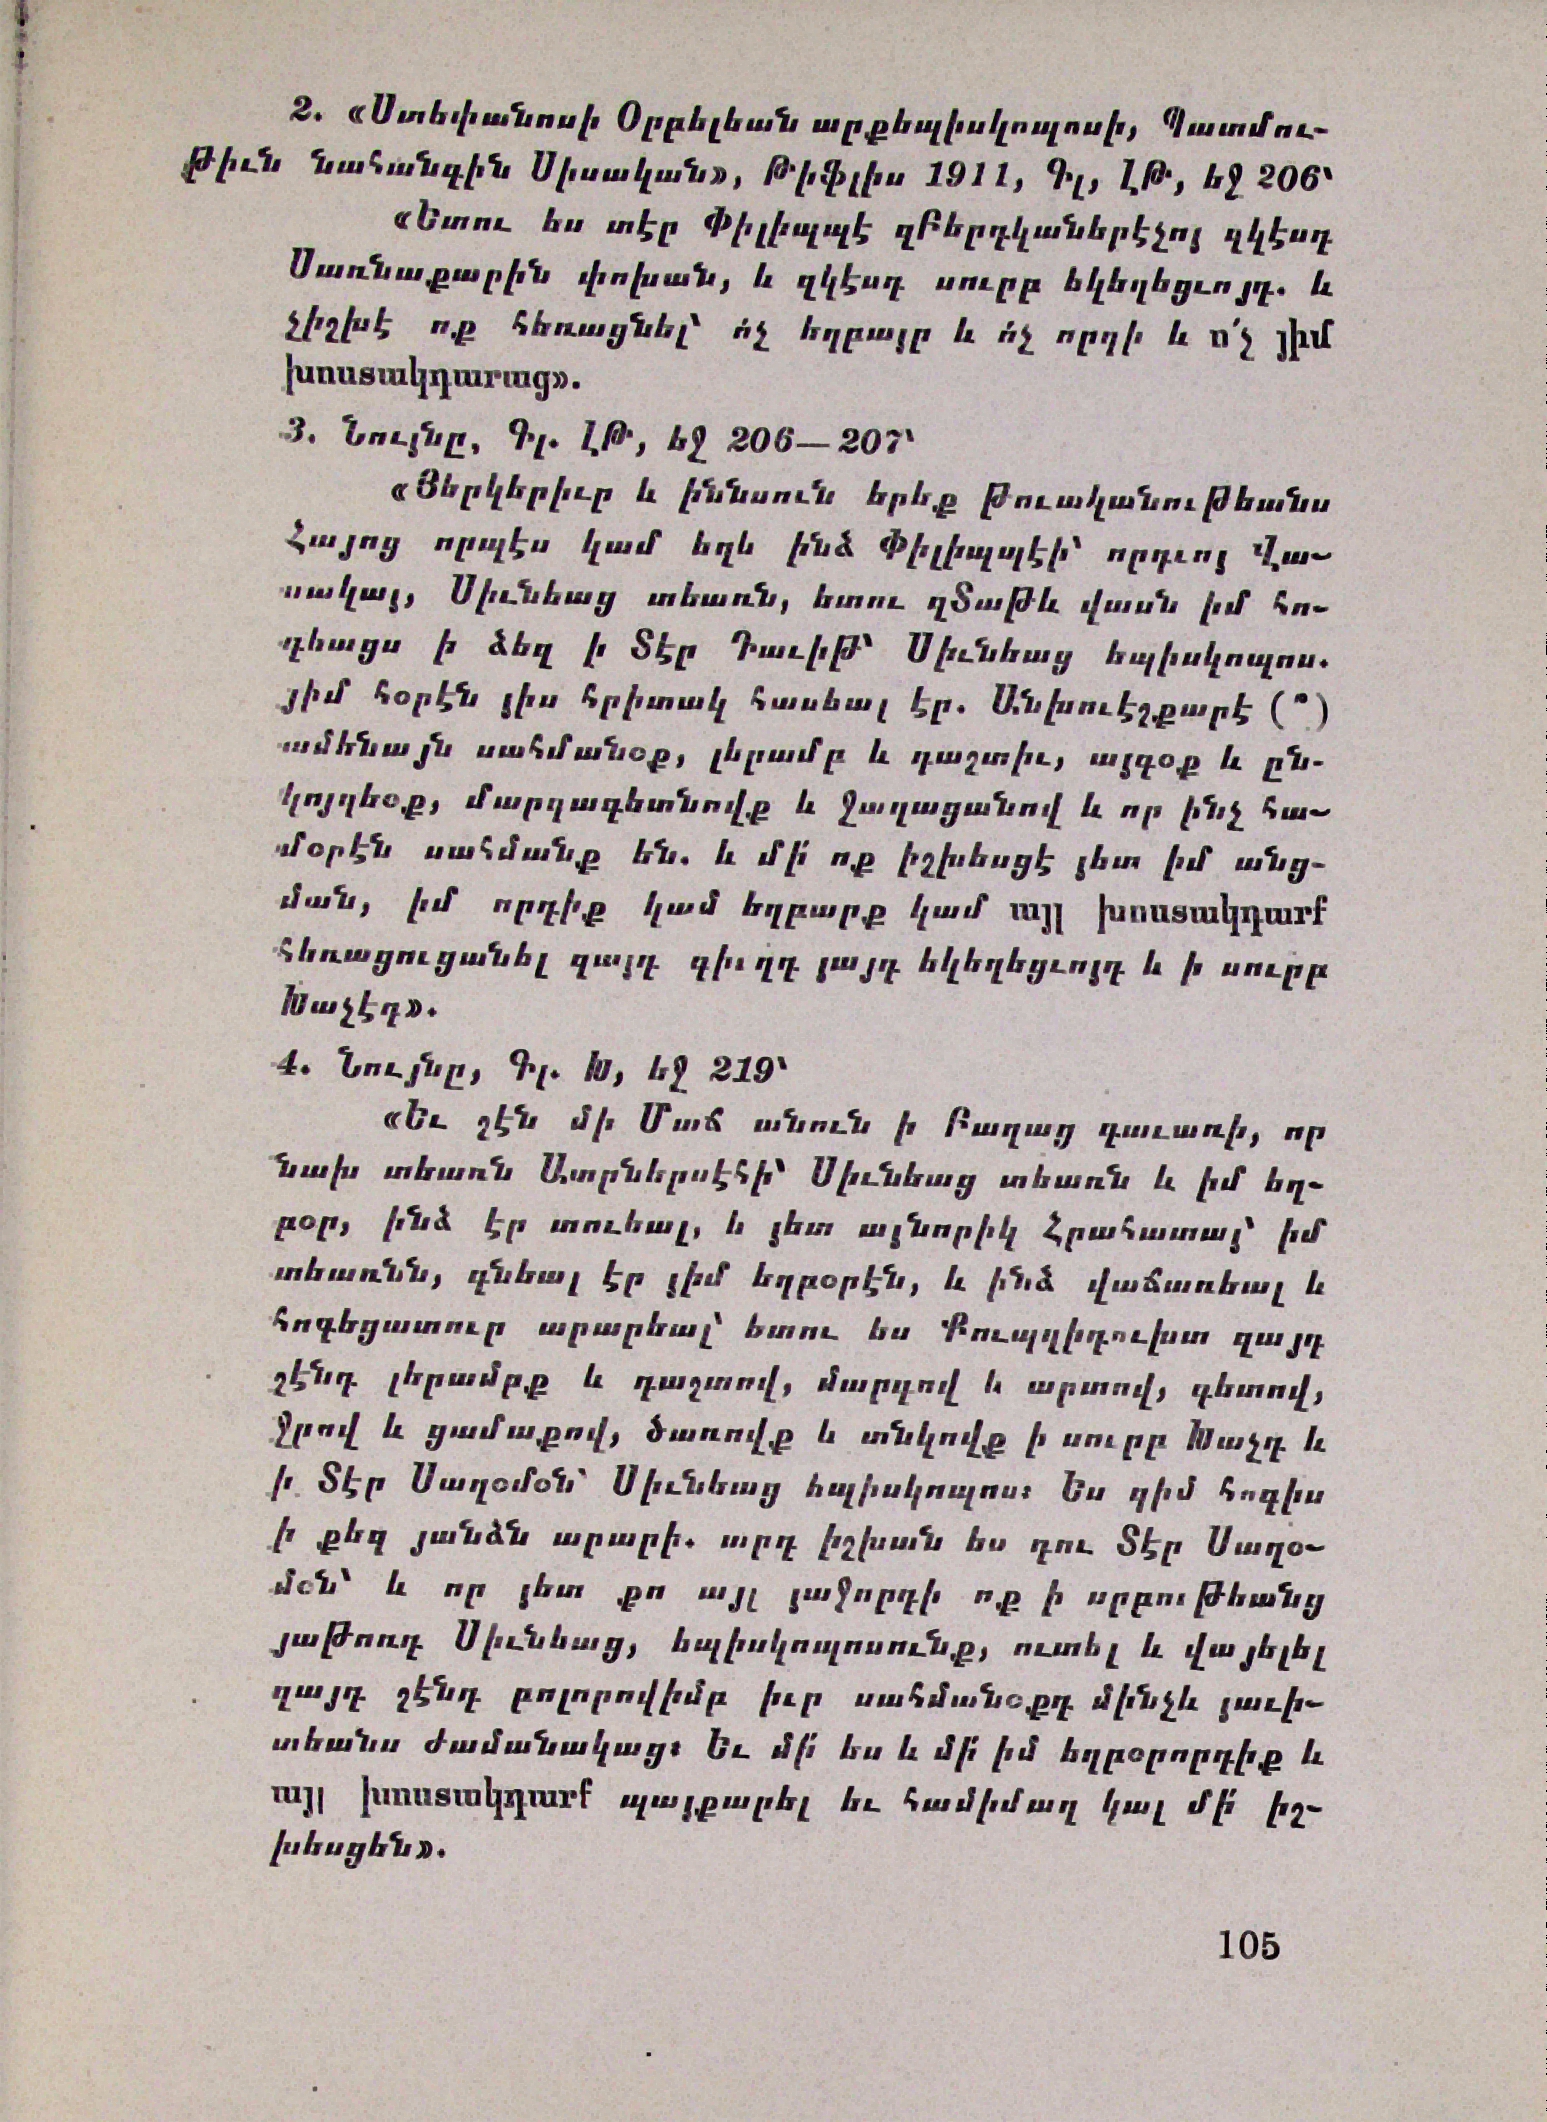 2. «Ստեփանոսի Օրբելեան արքեպիսկոպոսի, Պատմու-
թիւն նահանգին Սիսական», Թիֆլիս 1911, Գլ, ԼԹ, եջ 206՝
«Ետու ես տէր Փիլիպպէ զԲերդկաներէչոյ զկէսդ
Սառնաքարին փոխան, և զկէսդ սուրբ եկեղեցւոյդ. և
չիշխէ ոք հեռացնել՝ ո՛չ եղբայր և ո՛չ որդի և ո՛չ յիմ
խոստակդարաց».
3. Նույնը, Գլ. ԼԹ, եջ 206—207՝
«Յերկերիւր և իննսուն երեք թուականութեանս
Հայոց որպէս կամ եղև ինձ Փիլիպպէի՝ որդւոյ Վա-
սակայ, Սիւնեաց տեառն, ետու զՏաթև վասն իմ հո-
գեացս ի ձեզ ի Տէր Դաւիթ՝ Սիւնեաց եպիսկոպոս.
յիմ հօրէն յիս հրիտակ հասեալ էր. Անխուէշքարէ (՞)
ամենայն սահմանօք, լերամբ և դաշտիւ, այգօք և ըն-
կոյզեօք, մարդագետնովք և ջաղացանով և որ ինչ հա-
մօրէն սահմանք են. և մի՛ ոք իշխեսցէ յետ իմ անց-
ման, իմ որդիք կամ եղբարք կամ այլ խոստակդարք
հեռացուցանել զայդ գիւղդ յայդ եկեղեցւոյդ և ի սուրբ
Խաչէդ».
4. Նույնը, Գլ. Խ, եջ 219՝
«Եւ շէն մի Մաճ անուն ի Բաղաց գաւառի, որ
նախ տեառն Ատրներսէհի՝ Սիւնեաց տեառն և իմ եղ-
բօր, ինձ էր տուեալ, և յետ այնորիկ Հրահատայ՝ իմ
տեառնն, գնեալ էր յիմ եղբօրէն, և ինձ վաճառեալ և
հոգեցատուր արարեալ՝ ետու ես Քուպղիդուխտ զայդ
շէնդ լերամբք և դաշտով, մարդով և արտով, գետով,
ջրով և ցամաքով, ծառովք և տնկովք ի սուրբ Խաչդ և
ի Տէր Սաղօմօն՝ Սիւնեաց եպիսկոպոս։ Ես զիմ հոգիս
ի քեզ յանձն արարի. արդ իշխան ես դու Տէր Սաղօ-
մօն՝ և որ յետ քո այլ յաջորդի ոք ի սրբութեանց
յաթոռդ Սիւնեաց, եպիսկոպոսունք, ուտել և վայելել
զայդ շէնդ բոլորովիմբ իւր սահմանօքդ մինչև յաւի-
տեանս ժամանակաց։ Եւ մի՛ ես և մի՛ իմ եղբօրորդիք և
այլ խոստակդարք պայքարել եւ համիմաղ կալ մի՛ իշ-
խեսցեն».
105